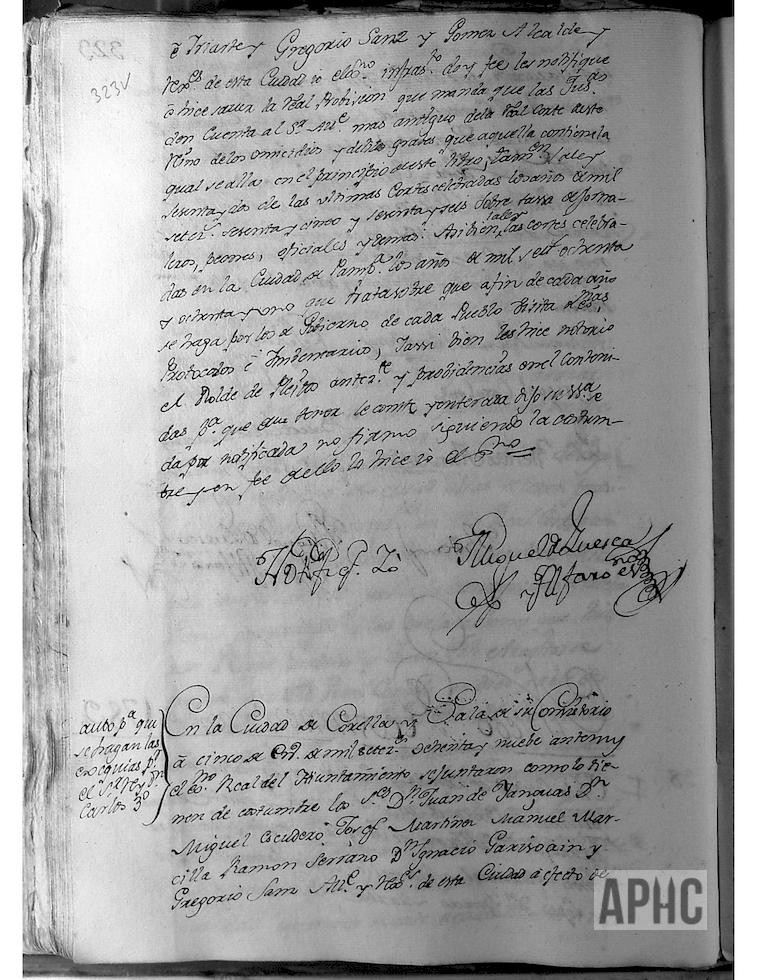 323V
é Iriarte y Gregorio Sanz y Gomez Alcalde y
Rex.es de esta Ciudad io el es.no infras.to doy fee les notifique
é hice saver la Real Probision que manda que las Jus.as
den Cuenta al S.r Alc.e mas antiguo dela Real Corte deste
Reino de los omicidios y delitos grabes, que aquella contiene la
qual se alla en el principio deeste libro, tam.en la ley
sesenta y dos de las ultimas Cortes celebradas los años de mil
setez.s sesenta y cinco y sesenta y seis sobre tassa de Jorna-
leros, peones, oficiales y demas. Asibien, la ley las cortes celebra-
das en la Ciudad de Pamp.a los años de mil set.s ochenta
y ochenta y uno que trata sobre que a fin de cada año
se haga por los de Gobierno de cada Pueblo Visita de es.nos
Protocolos é Imbentario, Y assi bien les hice notorio
el Rolde de Pleitos anter.te y probidencias en el conteni-
das p.a que su tenor le conste y enterada dijo su ss.a se
da por notificada no firmo siguiendo la costum-
bre y en fee de ello lo hice io el es.no
Miguel de Luesca
y Alfaro es.no
auto p.a que
se hagan las
exequias p.r
el S.r Rey D.n
Carlos 3.o
En la Ciudad de Corella y Sala de su Consistorio
á cinco de En.o de mil setez.s ochenta y nuebe ante mi
el es.no Real del Aiuntamiento se juntaron como lo tie-
nen de costumbre los S.res D.n Juan de Yanguas D.n
Miguel Escudero Josef Martinez Manuel Mar-
cilla Ramon Serrano D.n Ignacio Garisoain y
Gregorio Sanz Alc.e y Rex.s de esta Ciudad a efecto de
APHC